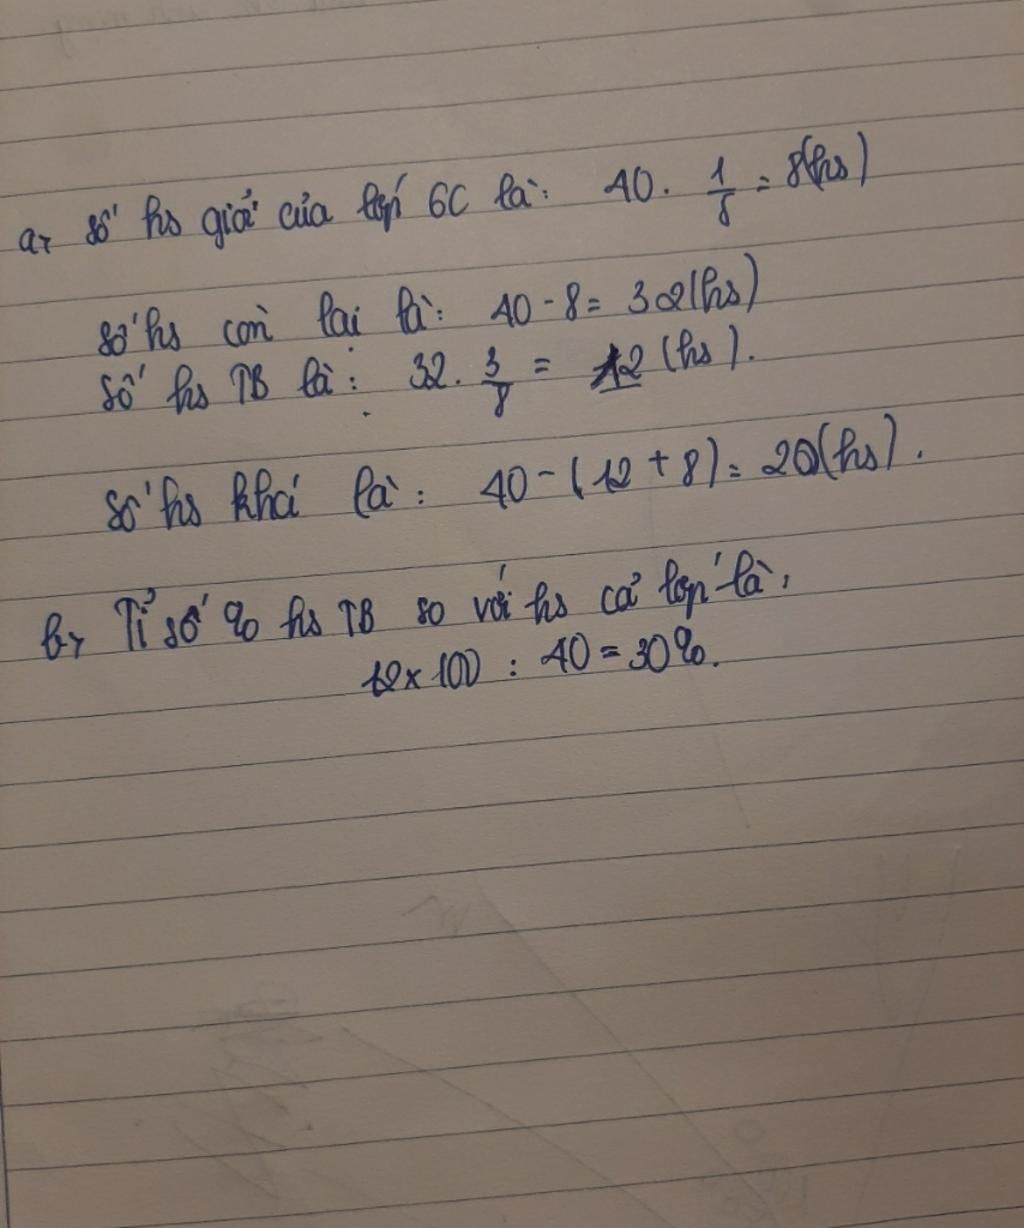 a, Số hs giỏi của lớp 6C là: 40. 1/5 = 8(hs)
số hs còn lại là: 40 - 8 = 32(hs)
Số hs TB là: 32. 3/8 = 12 (hs).
số hs khá là: 40 - (12 + 8) = 20(hs).
b, Tỉ số % hs TB so với hs cả lớp là:
12 x 100 : 40 = 30%.